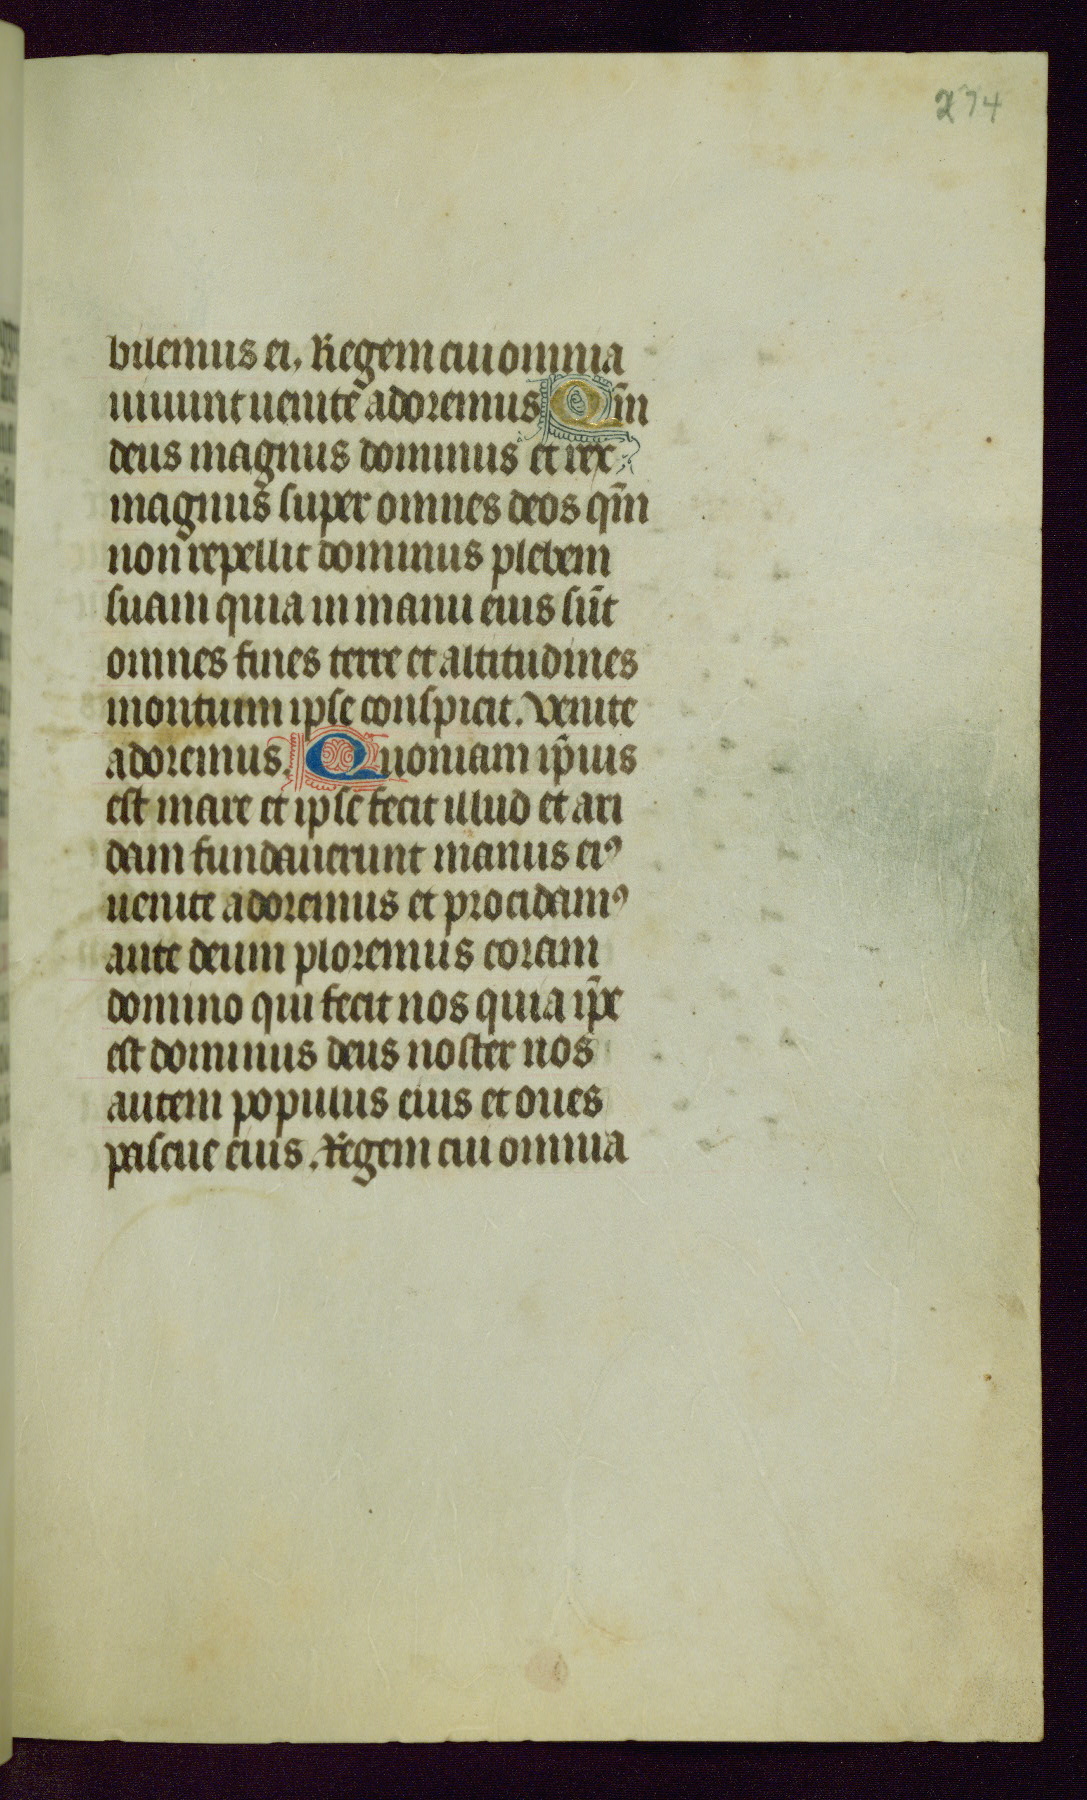 274
bilemus ei. Regem cui omnia
uiuunt uenite adoremus Qm̄
deus magnus dominus et rex
magnus super omnes deos qm̄
non repellit dominus plebem
suam quia in manu eius sūt
omnes fines terre et altitudines
montium ipse conspicit. Venite
adoremus. Quoniam ip̄ius
est mare et ipse fecit illud et ari
dam fundauerunt manus eiꝰ
uenite adoremus et procidamꝰ
ante deum ploremus coram
domino qui fecit nos quia ip̄e
est dominus deus noster nos
autem populus eius et oues
pascue eius. Regem cui omnia